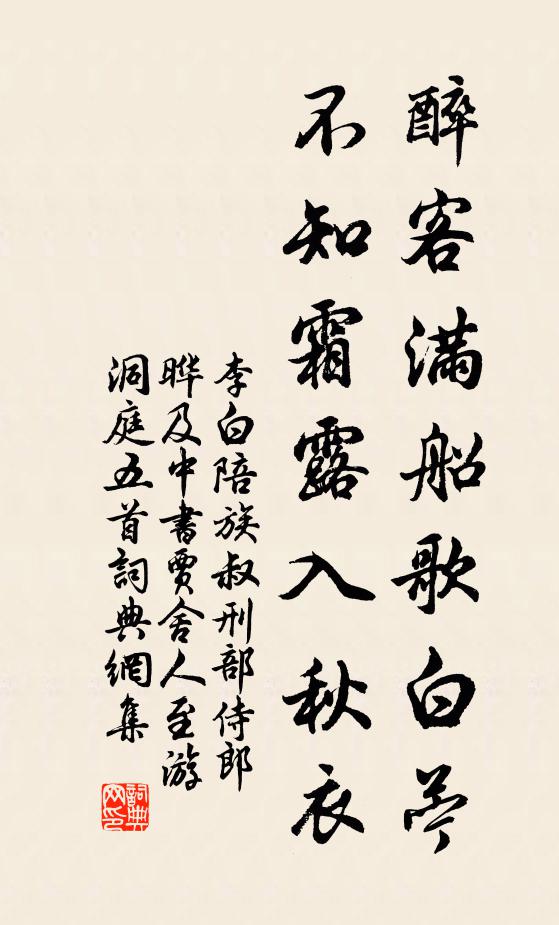 醉客滿船歌白苧
不知霜露入秋衣
李白陪族叔刑部侍郎
晔及中書賈舍人至游
洞庭五首詞典網集
詞典
网印